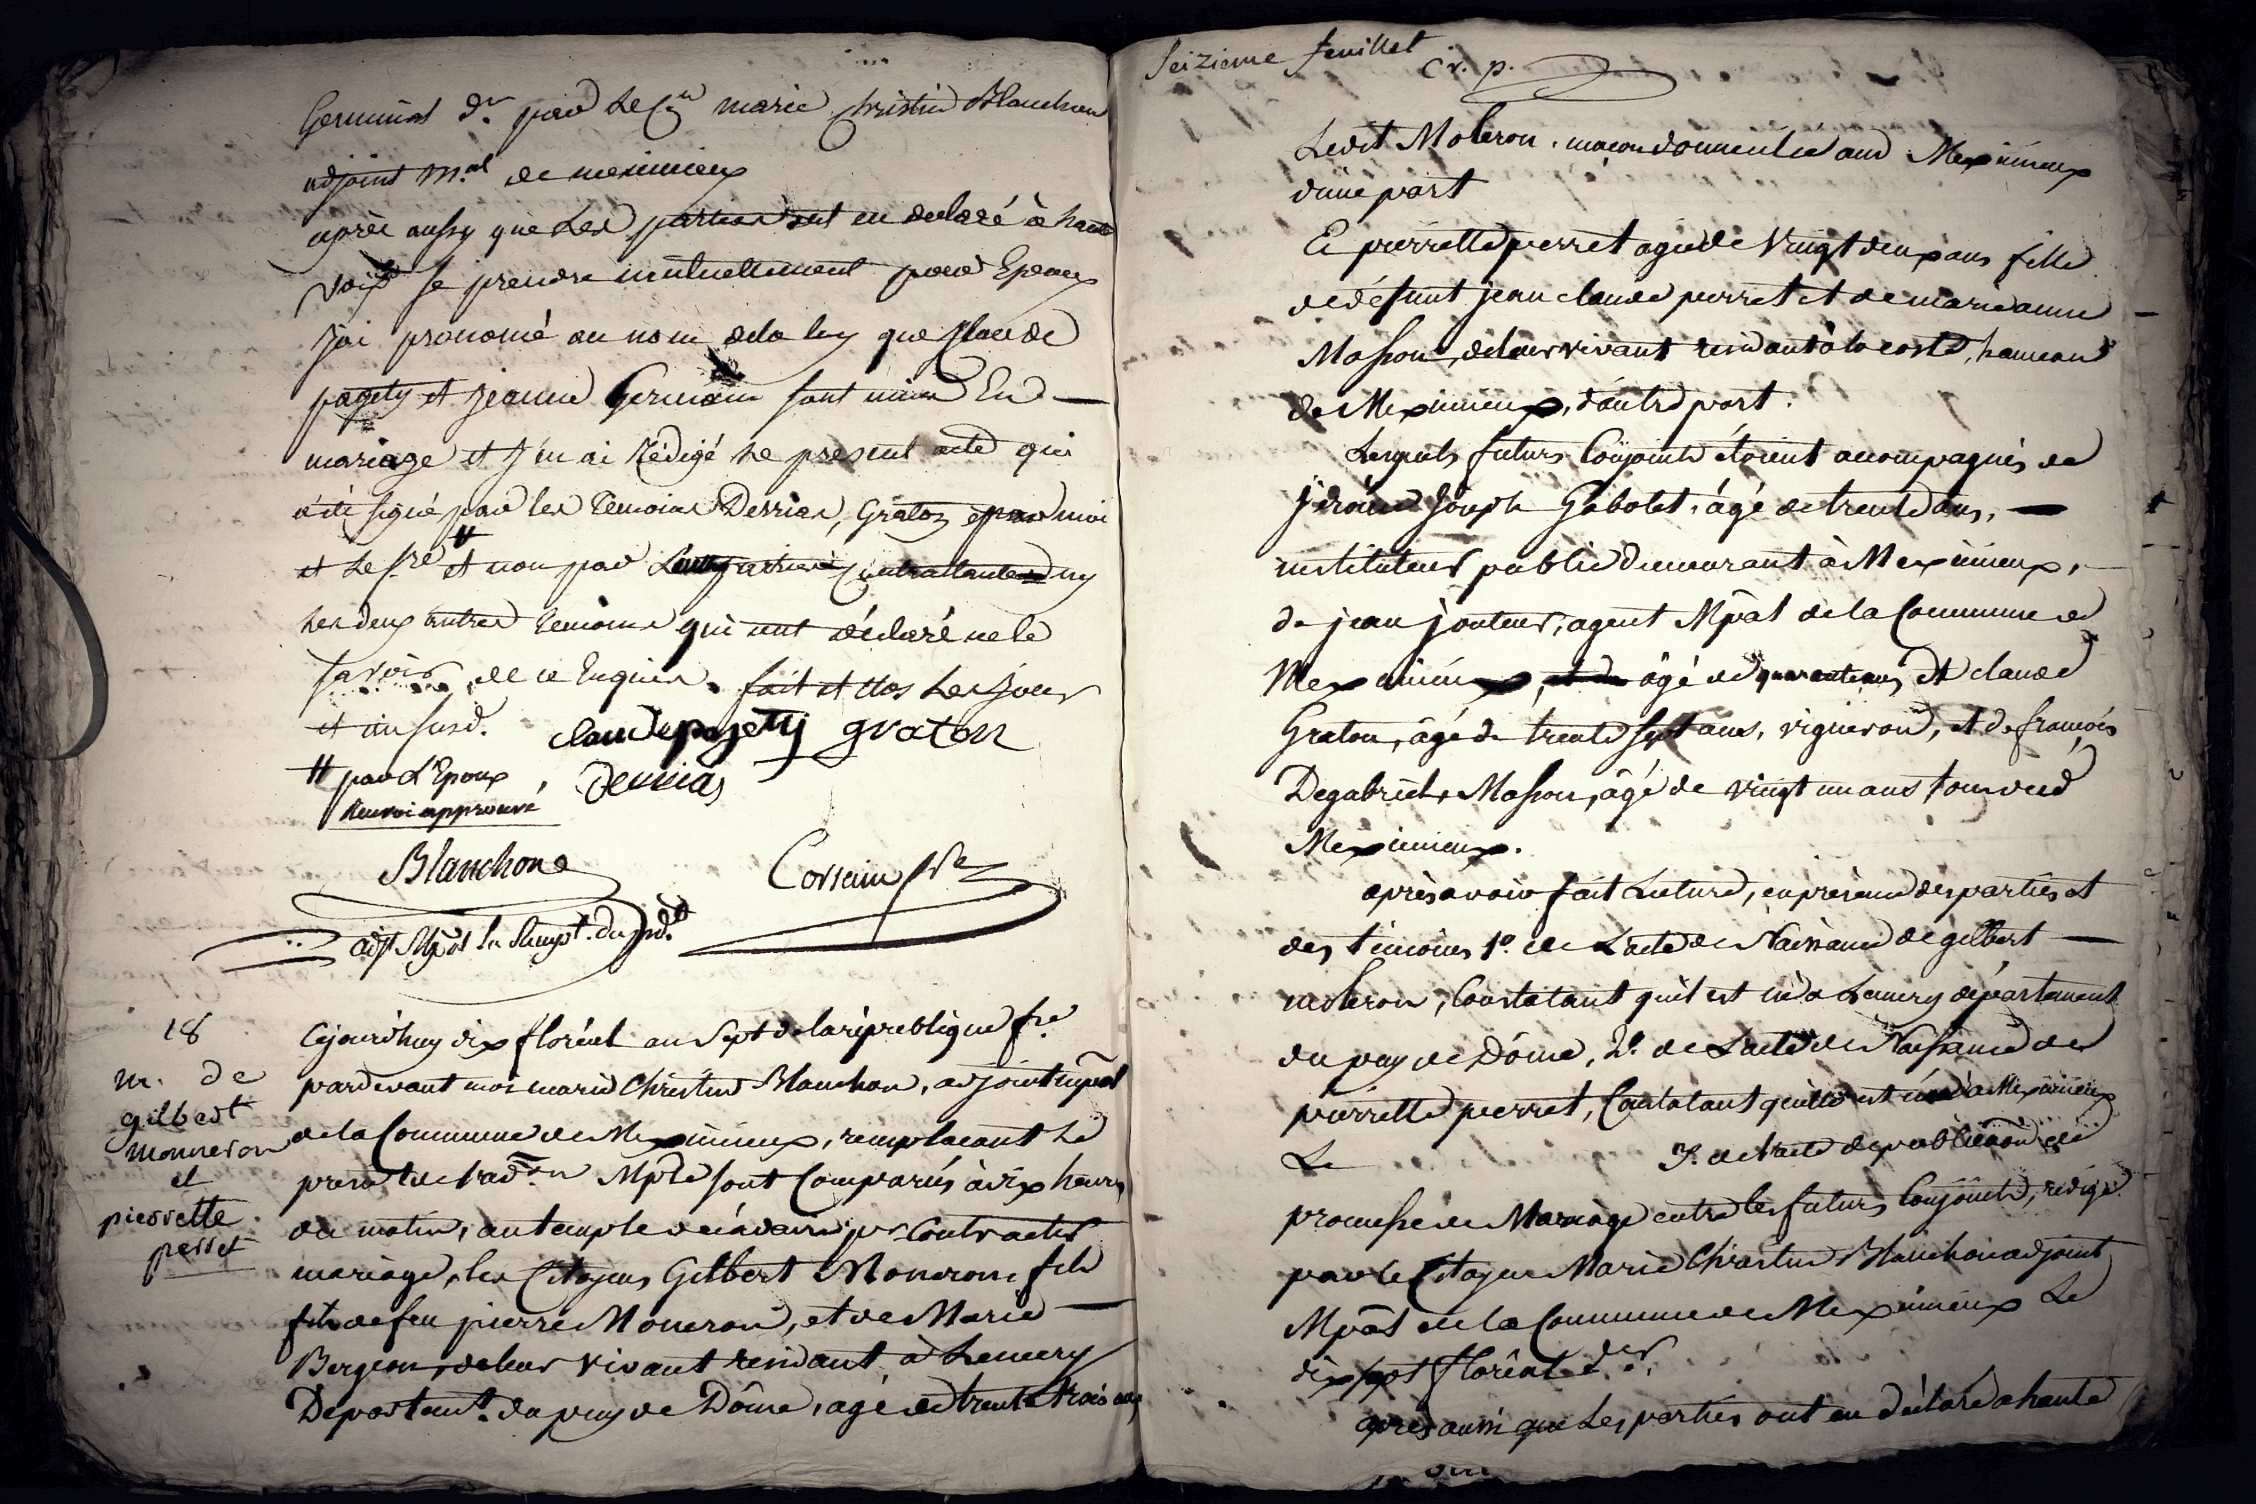 Germinal d.er par le C.en marie Christin Blanchon
adjoint m.al de meximieux
après aussy que les parties ont eu declaré à haute
voix se prendre mutuellement pour Epoux
j'ai prononcé au nom de la loy que Claude
pagety et jeanne Germain sont unis En
mariage et j'en ai rédigé le present acte qui
a été signé par les temoins Derrias, Graton et par moi
et le s.re # et non par contractantes ny
les deux autres temoins qui ont déclaré ne le
savoir, de ce Enquis. fait et clos les jour
et an susd.
claude pagetty graton
# par l'Epoux
Renvoi approuvé
Derrias
Blanchon
Corsain s.re
adj.t Mp.al en l'emp.t du p.dt
18
m. de
gilbert
monneron
et
pierrette
perret
Cejourd'huy dix floréal an Sept de la république f.se
pardevant moi marie Christin Blanchon, adjoint mp.al
de la Commune de Meximieux, remplacant le
presid.t de l'ad.on Mp.le sont Comparus à dix heures
du matin, au temple décadaire p.r Contracter
mariage, les Citoyens Gilbert Moneron fils
fils de feu pierre Moneron, et de Marie
Bergeon, de leur vivant residant à Lemery
Departem.t du puy de Dôme, agé de trente trois ans
Seizieme feuillet
C. V. p.
Ledit Moleron, macon domicilié aud Meximieux
d'une part
Et pierrette perret agée de vingt deux ans fille
de défunt jean claude perret et de marie anne
Masson, de leur vivant residant à la coste, hameau
de Meximieux, d'autre part.
Lesquels futurs Conjoints étoient accompagnés de
jérôme Joseph Gabolet, âgé de trente ans,
instituteur public demeurant à Meximieux,
de jean jouteur, agent Mp.al de la Commune de
Meximieux, et de âgé de quarante ans, et claude
Graton, âgé de trente sept ans, vigneron, et de françois
De gabriel Masson, âgé de vingt un ans tous de
Meximieux.
après avoir fait Lecture, en présence des parties et
des témoins 1.o de L'acte de Naissance de gilbert
moleron, Constatant qu'il est né à Lemery département
du puy de Dôme, 2.o de L'acte de Naissance de
pierrette perret, Constatant qu'elle est née à Meximieux
Le 3.o de l'acte de publication de
promesse de Mariage entre les futurs Conjoints, rédigé
par le Citoyen Marie Christin Blanchon adjoint
Mp.al de la Commune de Meximieux Le
dix sept floréal d.er.
après aussi que Les parties ont eu déclaré à haute
voix